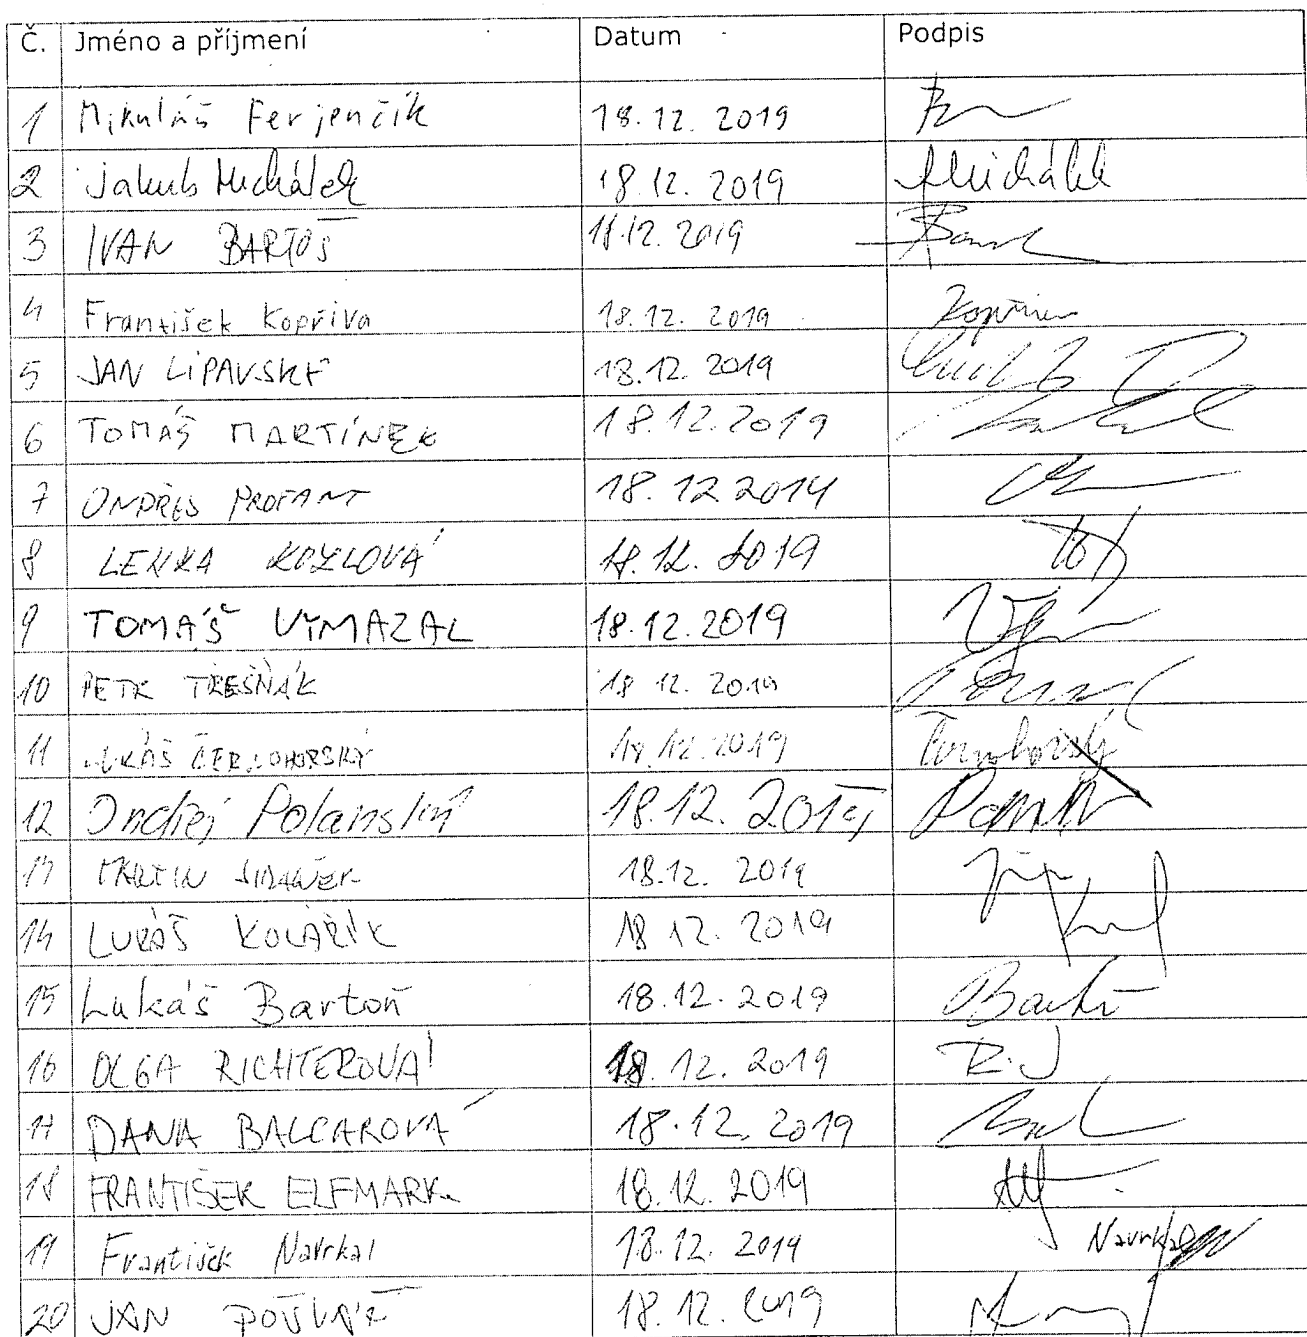 Č. Jméno a příjmení Datum Podpis
1 Mikuláš Ferjenčík 18.12. 2019
2 Jakub Michálek 18.12. 2019 Michálek
3 IVAN BARTOŠ 18.12. 2019
4 František Kopřiva 18.12. 2019 Kopřiva
5 JAN LIPAVSKÝ 18.12. 2019
6 TOMÁŠ MARTÍNEK 18.12.2019
7 ONDŘEJ PROFANT 18.12 2019
8 LENKA KOZLOVÁ 18.12. 2019
9 TOMÁŠ VYMAZAL 18.12.2019
10 PETR TŘEŠŇÁK 18 12. 2019
11 LUKÁŠ ČERNOHORSKÝ 18.12.2019
12 Ondřej Polanský 18.12. 2019
13 MARTIN JIRÁNEK 18.12. 2019
14 LUKÁŠ KOLÁŘÍK 18 12. 2019
15 Lukáš Bartoň 18.12. 2019
16 OLGA RICHTEROVÁ 18. 12. 2019
17 DANA BALCAROVÁ 18.12. 2019
18 FRANTIŠEK ELFMARK 18.12. 2019
19 František Navrkal 18.12. 2019 Navrkal
20 JAN POŠVÁŘ 18.12. 2019